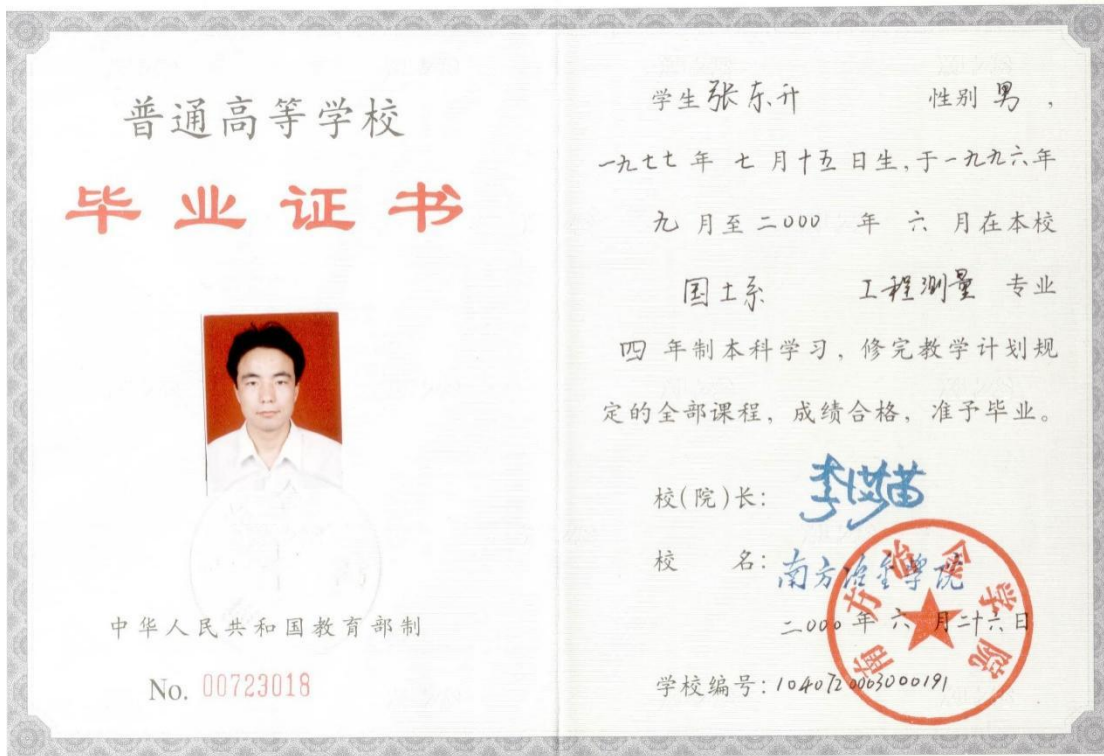 普通高等学校
毕业证书
中华人民共和国教育部制
No. 00723018
学生张东升 性别 男,
一九七七 年 七 月十五 日生,于一九九六年
九 月至 二000 年 六 月在本校
国土系 工程测量 专业
四 年制本科学习,修完教学计划规
定的全部课程,成绩合格,准予毕业。
校(院)长:
校 名:南方冶金学院
二000 年 六 月二十六日
学校编号:1040720003000191
南方冶金学院